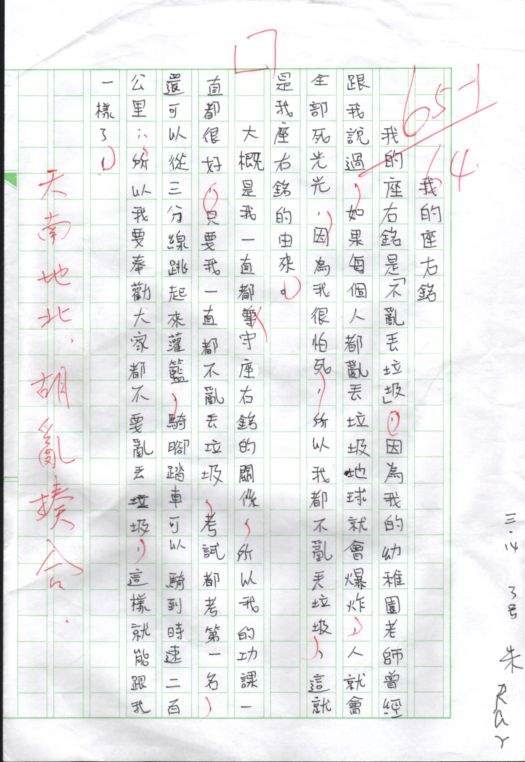 我的座右銘
我的座右銘是「不亂丟垃圾」，因為我的幼稚園老師曾經
跟我說過，如果每個人都亂丟垃圾地球就會爆炸，人就會
全部死光光，因為我很怕死，所以我都不亂丟垃圾，這就
是我座右銘的由來。
大概是我一直都遵守座右銘的關係，所以我的功課一
直都很好，只要我一直都不亂丟垃圾，考試都考第一名，
還可以從三分線跳起來灌籃，騎腳踏車可以騎到時速二百
公里，所以我要奉勸大家都不要亂丟垃圾，這樣就能跟我
一樣了！
65-1
64
天南地北，胡亂揍合．
三.14 3号 朱